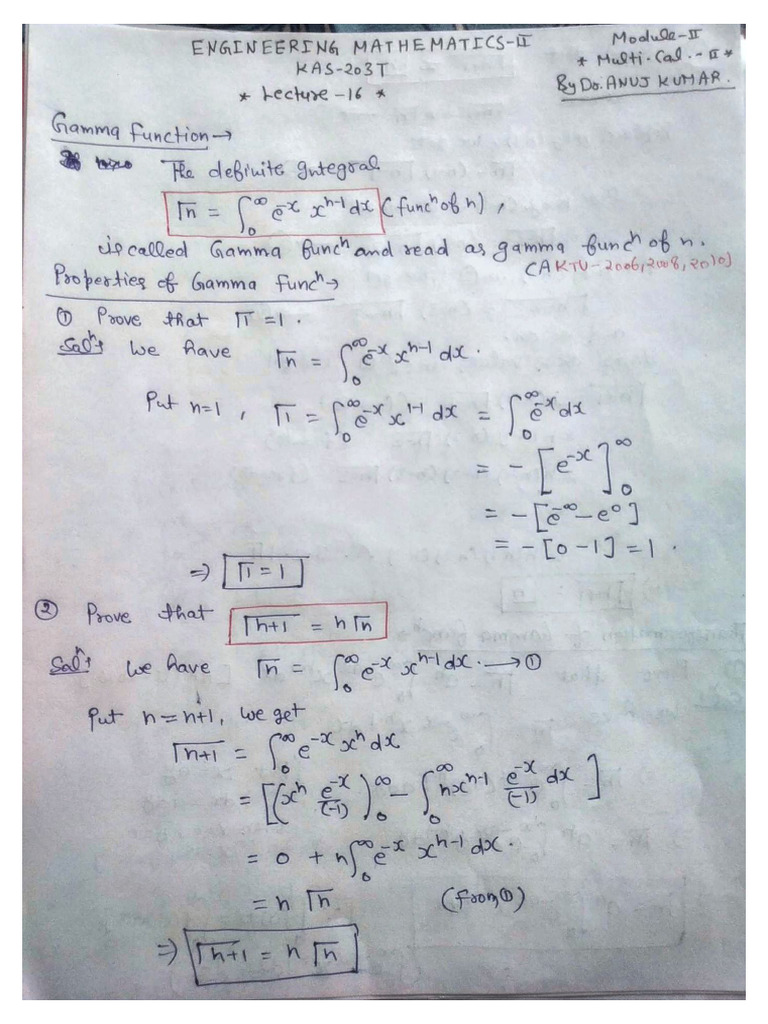 ENGINEERING MATHEMATICS-II
KAS-203T
* Lecture-16 *
Module-II
* Multi.Cal.-II *
By Dr. ANUJ KUMAR.
Gamma Function→
The definite Integral
Γn = ∫₀^∞ e^-x x^n-1 dx (funcⁿ of n),
is called Gamma funcⁿ and read as gamma funcⁿ of n.
(AKTU-2006,2008,2010)
Properties of Gamma Funcⁿ→
① Prove that Γ1 = 1.
Solⁿ: We have Γn = ∫₀^∞ e^-x x^n-1 dx.
Put n=1, Γ1 = ∫₀^∞ e^-x x^1-1 dx = ∫₀^∞ e^-x dx
= -[e^-x]₀^∞
= -[e^-∞ - e^0]
= -[0-1] = 1.
⇒ Γ1 = 1
② Prove that Γn+1 = n Γn
Solⁿ: We have Γn = ∫₀^∞ e^-x x^n-1 dx. → ①
Put n = n+1, we get
Γn+1 = ∫₀^∞ e^-x x^n dx
= [(x^n e^-x/(-1))₀^∞ - ∫₀^∞ n x^n-1 e^-x/(-1) dx]
= 0 + n∫₀^∞ e^-x x^n-1 dx.
= n Γn (from ①)
⇒ Γn+1 = n Γn